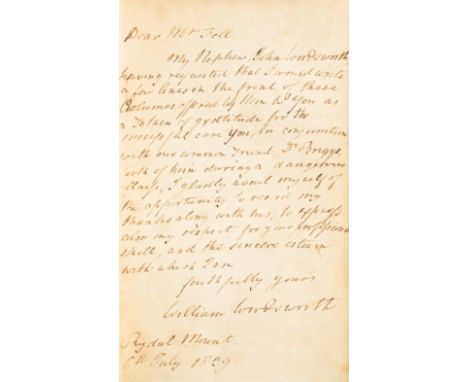 Dear Mr Fell
My Nephew, John Wordsworth,
having requested that I would write
a few lines in the front of these
Volumes, offered by Him to You as
a Token of gratitude for the
successful care you, in conjunction
with our common Friend, Dr Briggs,
took of him during a dangerous
illness, I gladly avail myself of
the opportunity to record my
thanks along with his; to express
also my respect for your professional
skill, and the sincere esteem
with which I am
faithfully yours
William Wordsworth
Rydal Mount.
6th July 1839